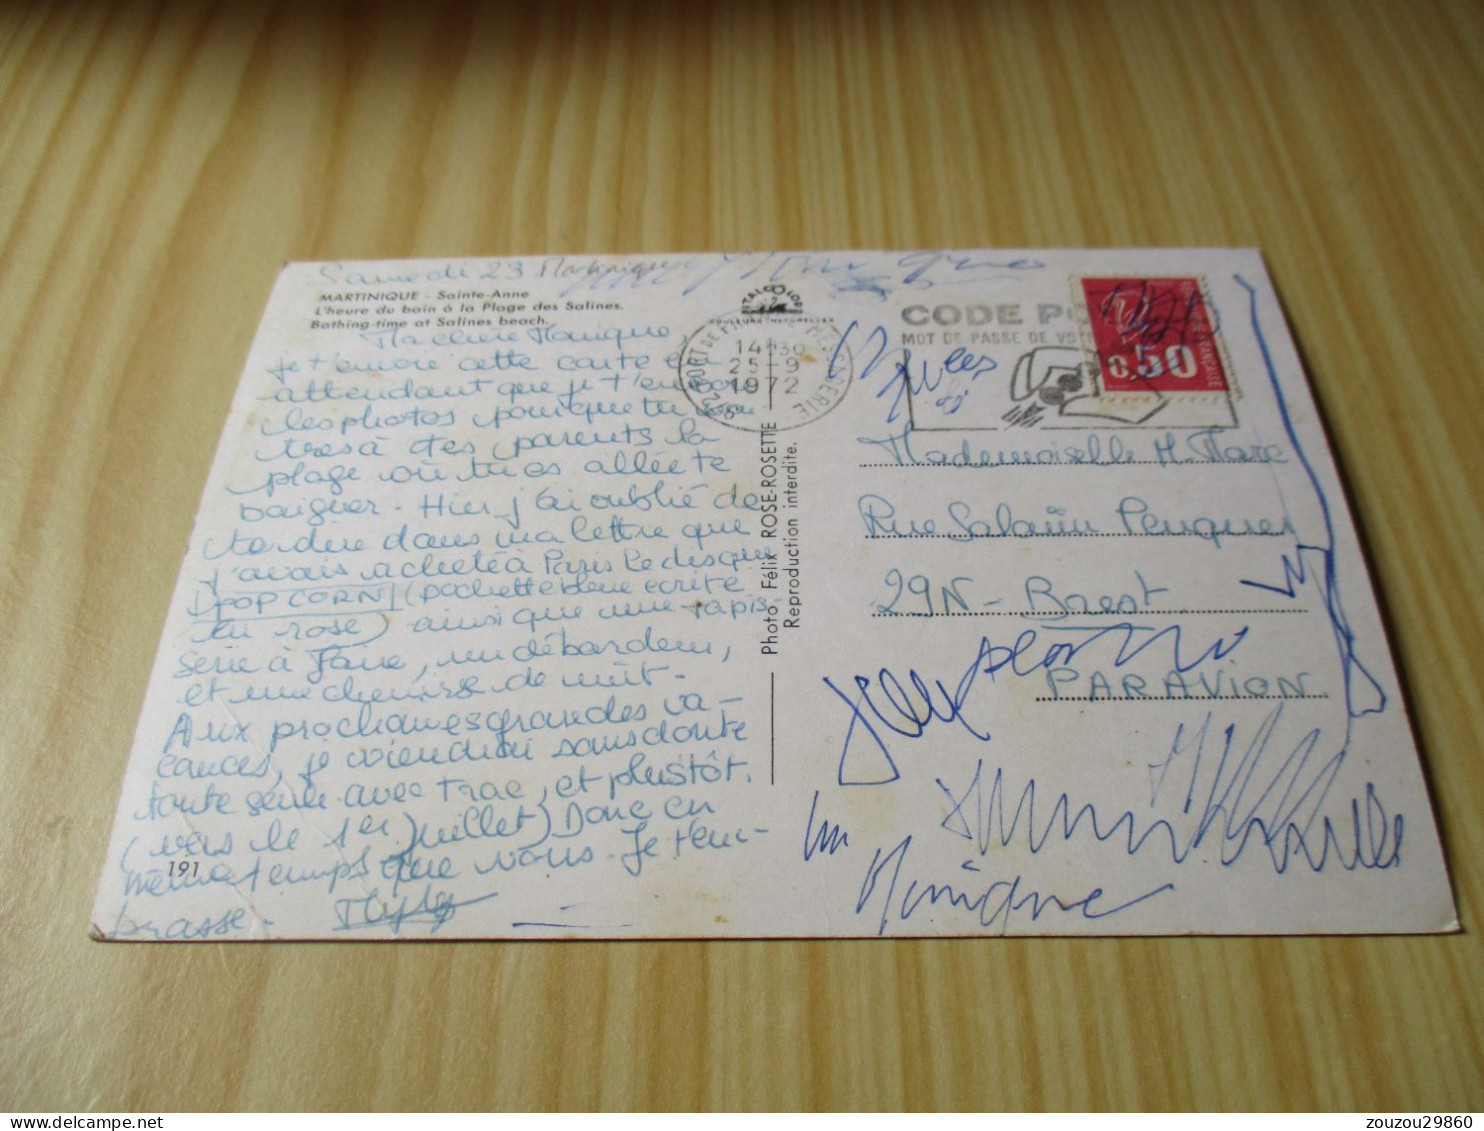 Samedi 23 Martinique
MARTINIQUE - Sainte-Anne
L'heure du bain à la Plage des Salines.
Bathing-time at Salines beach.
Ma chère Monique
je t'envoie cette carte en
attendant que je t'envoie
les photos pour que tu mon-
tres à tes parents la
plage où tu es allée te
baigner. Hier j'ai oublié de
te dire dans ma lettre que
j'avais acheté à Paris le disque
POP CORN (pochette bleue écrite
en rose) ainsi que une tapis-
serie à faire, un débardeur,
et une chemise de nuit.
Aux prochaines grandes va-
cances, je viendrai sans doute
toute seule avec Trac, et plustôt.
(vers le 1er juillet) Donc en
même temps que vous. Je t'em-
brasse.
191
ITALCOLOR
COULEURS NATURELLES
Photo. Félix ROSE-ROSETTE
Reproduction interdite.
972 FORT DE FRANCE MESSAGERIE
14H30
25-9
1972
CODE PO
MOT DE PASSE DE VOT
0,50
Mademoiselle M. Marc
Rue Salaün Penquer
29N - Brest
PAR AVION
Monique
zouzou29860